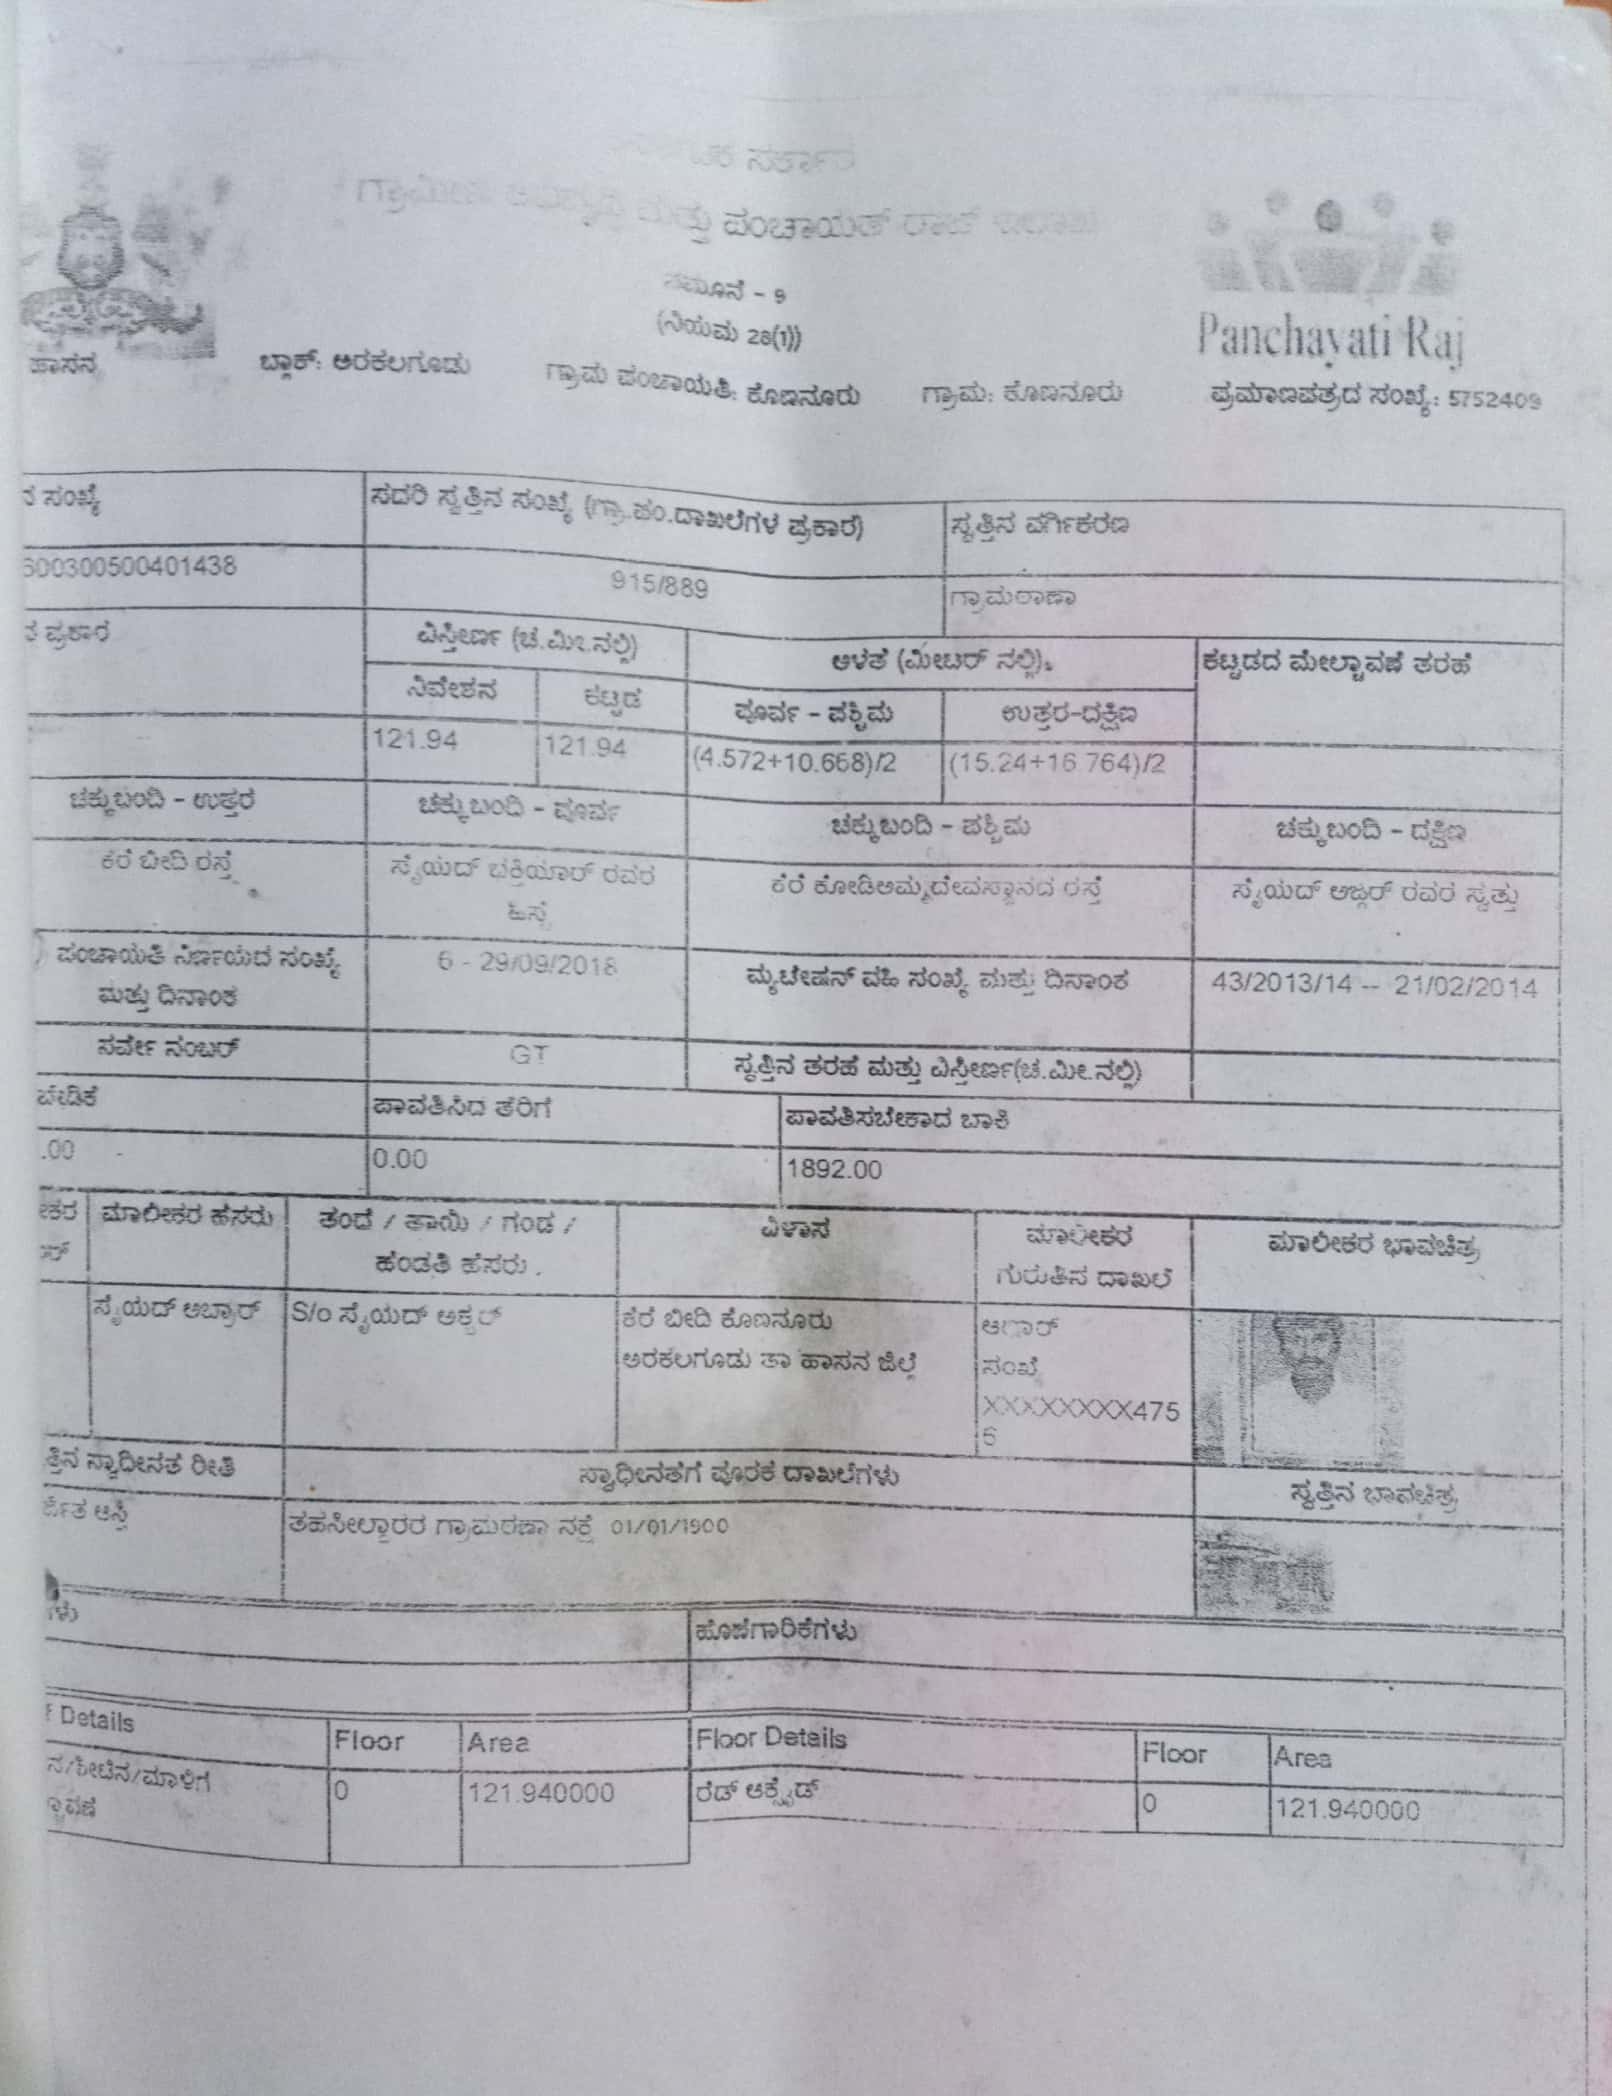 ಸರ್ಕಾರ
ಗ್ರಾಮೀಣ ಮತ್ತು ಪಂಚಾಯತ್ ರಾಜ್ ಇಲಾಖೆ
ನಮೂನೆ - 9
(ನಿಯಮ 28(1))
Panchayati Raj
ಹಾಸನ ಬ್ಲಾಕ್: ಅರಕಲಗೂಡು ಗ್ರಾಮ ಪಂಚಾಯತಿ: ಕೊಣನೂರು ಗ್ರಾಮ: ಕೊಣನೂರು ಪ್ರಮಾಣಪತ್ರದ ಸಂಖ್ಯೆ: 5752409
ನ ಸಂಖ್ಯೆ ಸದರಿ ಸ್ವತ್ತಿನ ಸಂಖ್ಯೆ (ಗ್ರಾ.ಪಂ.ದಾಖಲೆಗಳ ಪ್ರಕಾರ) ಸ್ವತ್ತಿನ ವರ್ಗಿಕರಣ
600300500401438 915/889 ಗ್ರಾಮಠಾಣಾ
ನ ಪ್ರಕಾರ ವಿಸ್ತೀರ್ಣ (ಚ.ಮೀ.ನಲ್ಲಿ) ಅಳತೆ (ಮೀಟರ್ ನಲ್ಲಿ): ಕಟ್ಟಡದ ಮೇಲ್ಚಾವಣಿ ತರಹೆ
ನಿವೇಶನ ಕಟ್ಟಡ ಪೂರ್ವ - ಪಶ್ಚಿಮ ಉತ್ತರ-ದಕ್ಷಿಣ
121.94 121.94 (4.572+10.668)/2 (15.24+16.764)/2
ಚಕ್ಕುಬಂದಿ - ಉತ್ತರ ಚಕ್ಕುಬಂದಿ - ಪೂರ್ವ ಚಕ್ಕುಬಂದಿ - ಪಶ್ಚಿಮ ಚಕ್ಕುಬಂದಿ - ದಕ್ಷಿಣ
ಕೆರೆ ಬೀದಿ ರಸ್ತೆ ಸೈಯದ್ ಭಕ್ತಿಯಾರ್ ರವರ ಕೆರೆ ಕೋಡಿಅಮ್ಮದೇವಸ್ಥಾನದ ರಸ್ತೆ ಸೈಯದ್ ಅಜ್ಗರ್ ರವರ ಸ್ವತ್ತು
ಹಿಸ್ಸೆ
) ಪಂಚಾಯತಿ ನಿರ್ಣಯದ ಸಂಖ್ಯೆ 6 - 29/09/2018 ಮ್ಯಟೇಷನ್ ವಹಿ ಸಂಖ್ಯೆ ಮತ್ತು ದಿನಾಂಕ 43/2013/14 -- 21/02/2014
ಮತ್ತು ದಿನಾಂಕ
ಸರ್ವೇ ನಂಬರ್ GT ಸ್ವತ್ತಿನ ತರಹೆ ಮತ್ತು ವಿಸ್ತೀರ್ಣ(ಚ.ಮೀ.ನಲ್ಲಿ)
ಬೇಡಿಕೆ ಪಾವತಿಸಿದ ತೆರಿಗೆ ಪಾವತಿಸಬೇಕಾದ ಬಾಕಿ
.00 0.00 1892.00
ಮಾಲೀಕರ ಹೆಸರು ತಂದೆ / ತಾಯಿ / ಗಂಡ / ವಿಳಾಸ ಮಾಲೀಕರ ಮಾಲೀಕರ ಭಾವಚಿತ್ರ
ಹೆಂಡತಿ ಹೆಸರು . ಗುರುತಿನ ದಾಖಲೆ
ಸೈಯದ್ ಅಬ್ರಾರ್ S/o ಸೈಯದ್ ಅಕ್ಬರ್ ಕೆರೆ ಬೀದಿ ಕೊಣನೂರು ಆಧಾರ್
ಅರಕಲಗೂಡು ತಾ ಹಾಸನ ಜಿಲ್ಲೆ ಸಂಖ್ಯೆ
XXXXXXXX475
6
ತ್ತಿನ ಸ್ವಾಧೀನತೆ ರೀತಿ ಸ್ವಾಧೀನತೆಗೆ ಪೂರಕ ದಾಖಲೆಗಳು ಸ್ವತ್ತಿನ ಭಾವಚಿತ್ರ
ರ್ಜಿತ ಆಸ್ತಿ ತಹಸೀಲ್ದಾರರ ಗ್ರಾಮಠಾಣಾ ನಕ್ಷೆ 01/01/1900
ಗಳು ಹೊಣೆಗಾರಿಕೆಗಳು
f Details Floor Area Floor Details Floor Area
ನ/ಶೀಟಿನ/ಮಾಳಿಗೆ 0 121.940000 ರೆಡ್ ಆಕ್ಸೈಡ್ 0 121.940000